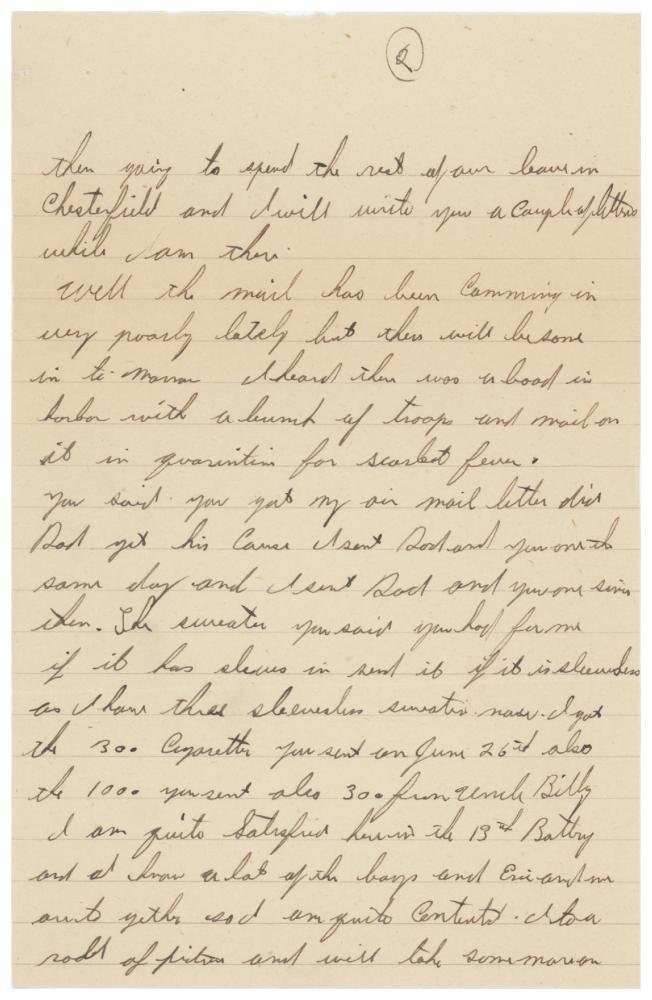 2
then going to spend the rest of our leave in
Chesterfield and I will write you a couple of letters
while I am there.
Well the mail has been Comming in
very poorly lately but there will be some
in to-morrow I heard there was a boad in
harbor with a bunch of troops and mail on
it in quarintin for scarlet fever.
You said you got my air mail letter did
Dad get his Cause I sent Dad and you one the
same day and I sent Dad and you one since
then. The sweater you said you had for me
if it has sleves in send it if it is sleeveless
as I have three sleeveless sweaters now. I got
the 300 Cigarettes you sent on June 26rd also
the 1000 you sent also 300 from Uncle Billy
I am quite Satisfied here in the 13th Battry
and I know a lot of the boys and Eric and me
are to gether so I am quite Contented. I to a
roll of pictures and will take some more on